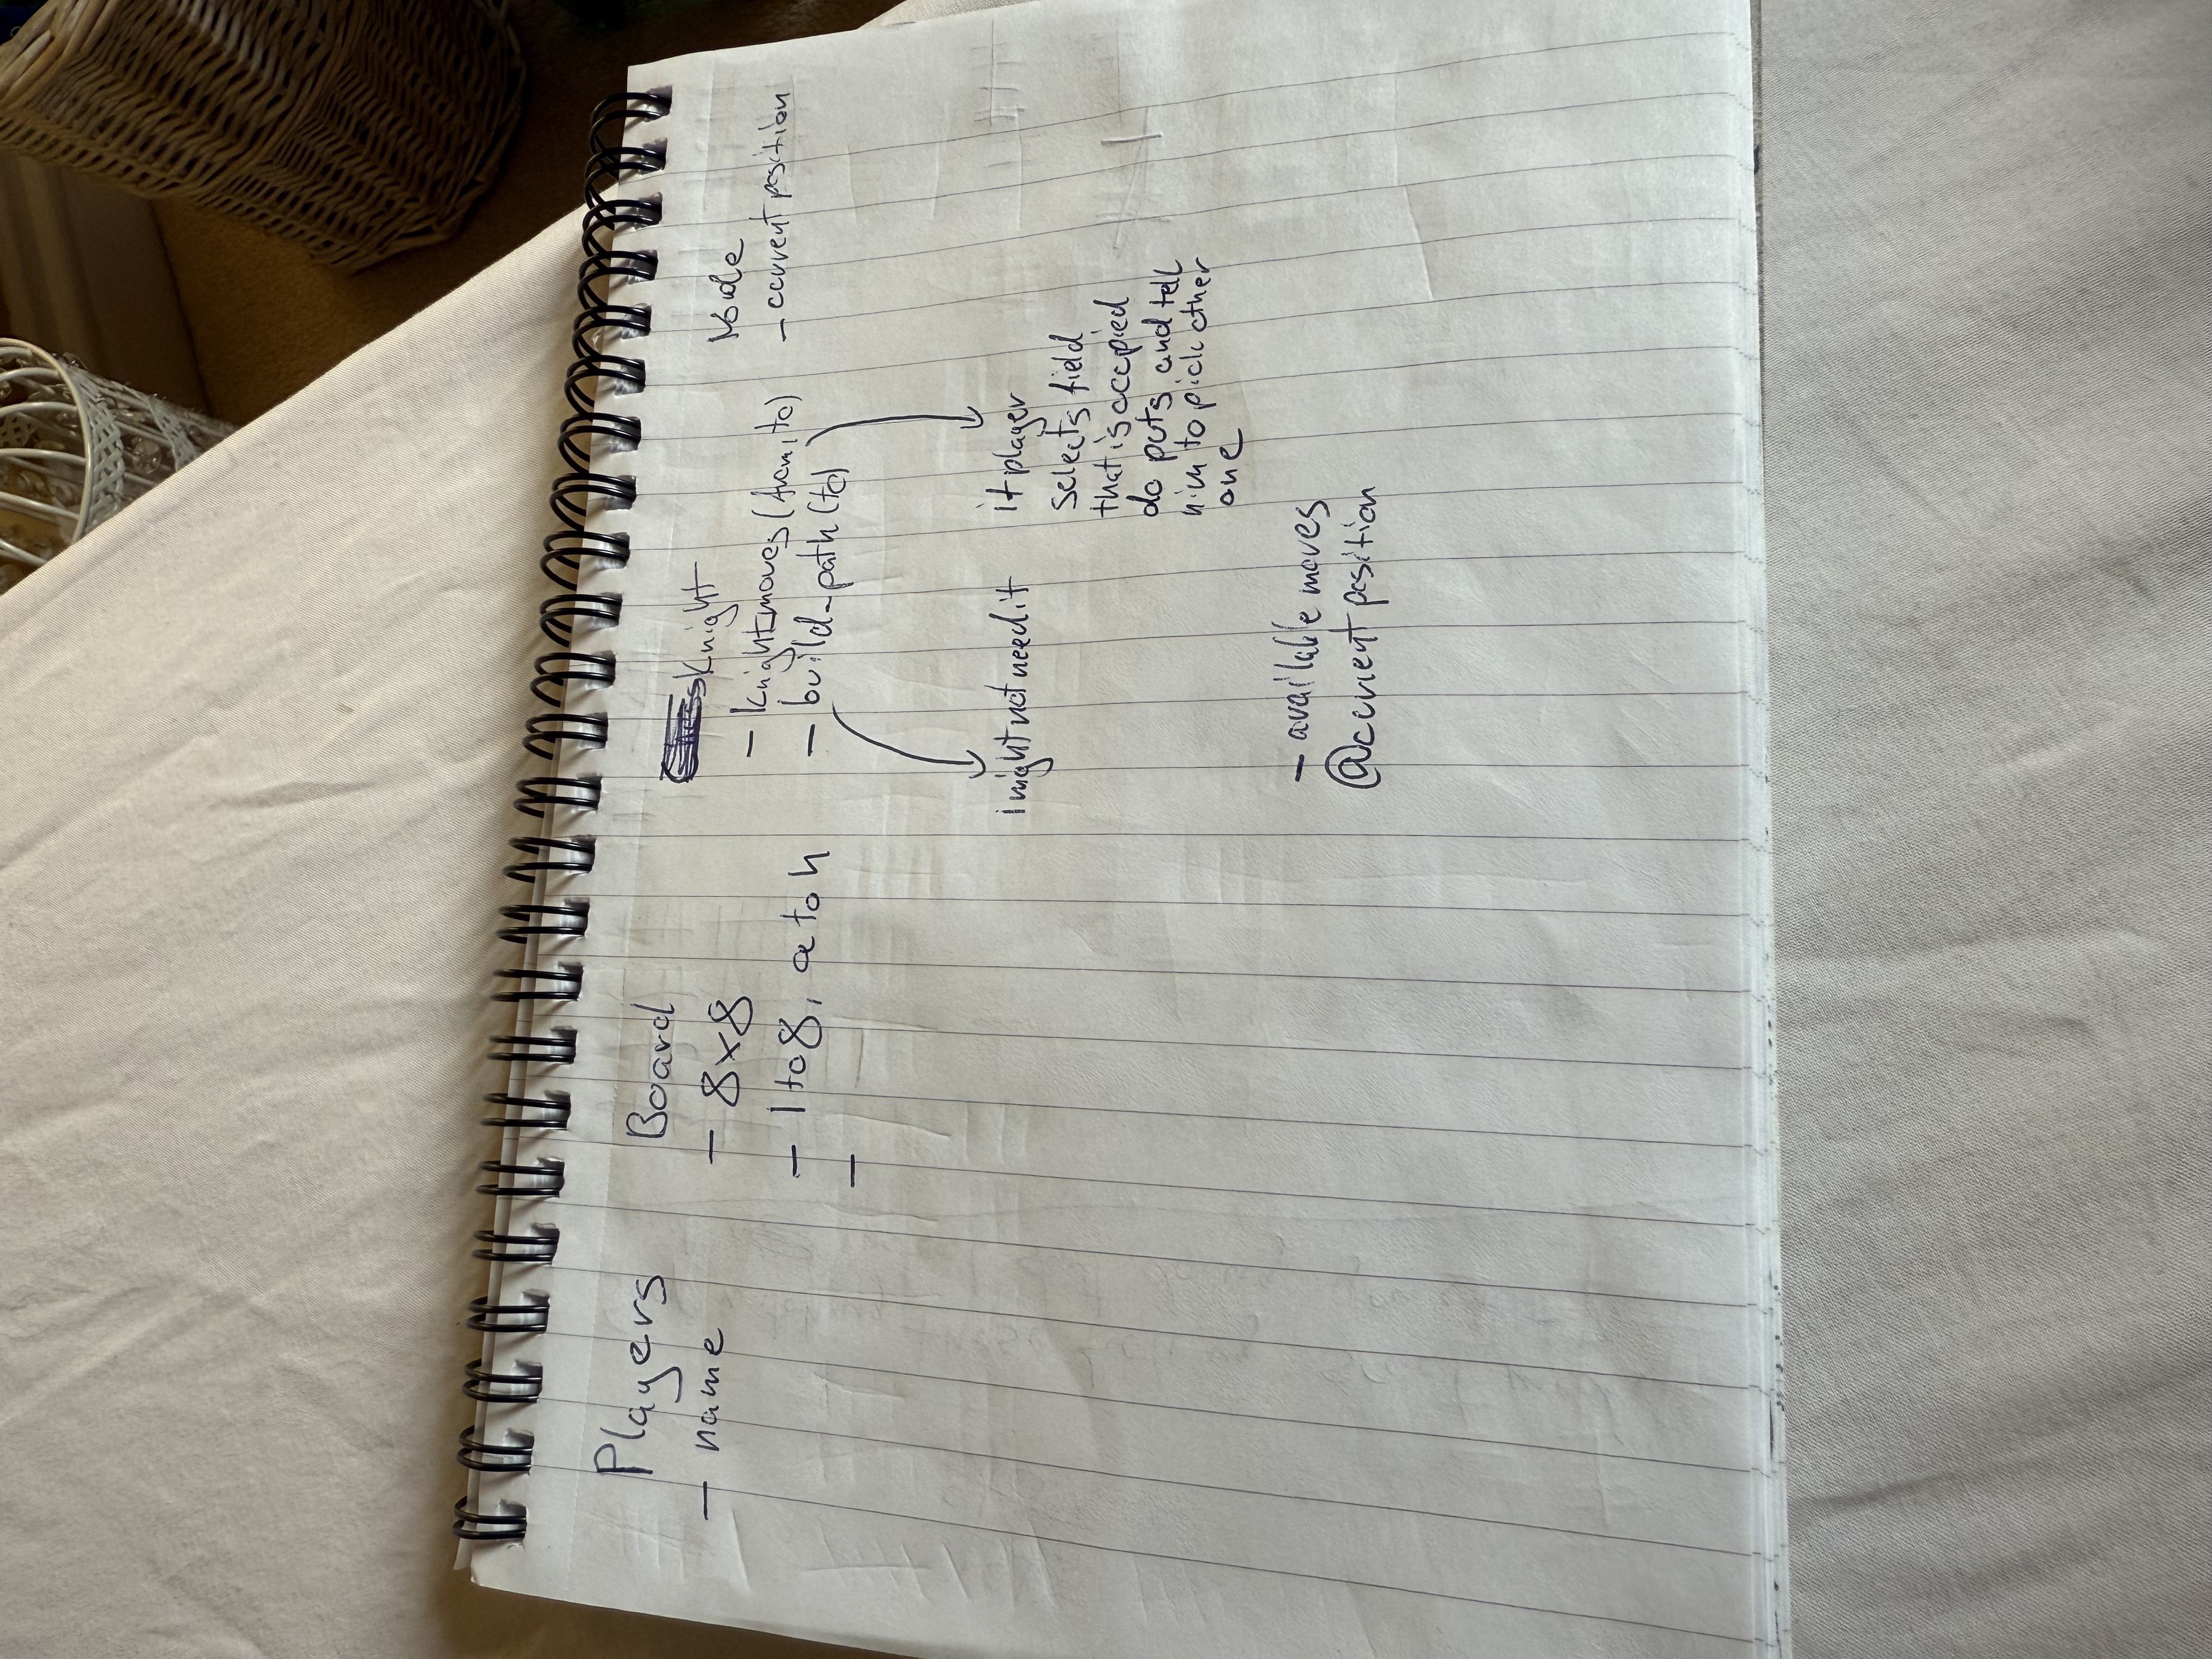 Players
- name
Board
- 8x8
- 1 to 8, a to h
-
Knight
- knight_moves (from, to)
- build_path (to)
i might not need it
if player
selects field
that is occupied
do puts and tell
him to pick other
one
- available moves
@current position
Node
- current position